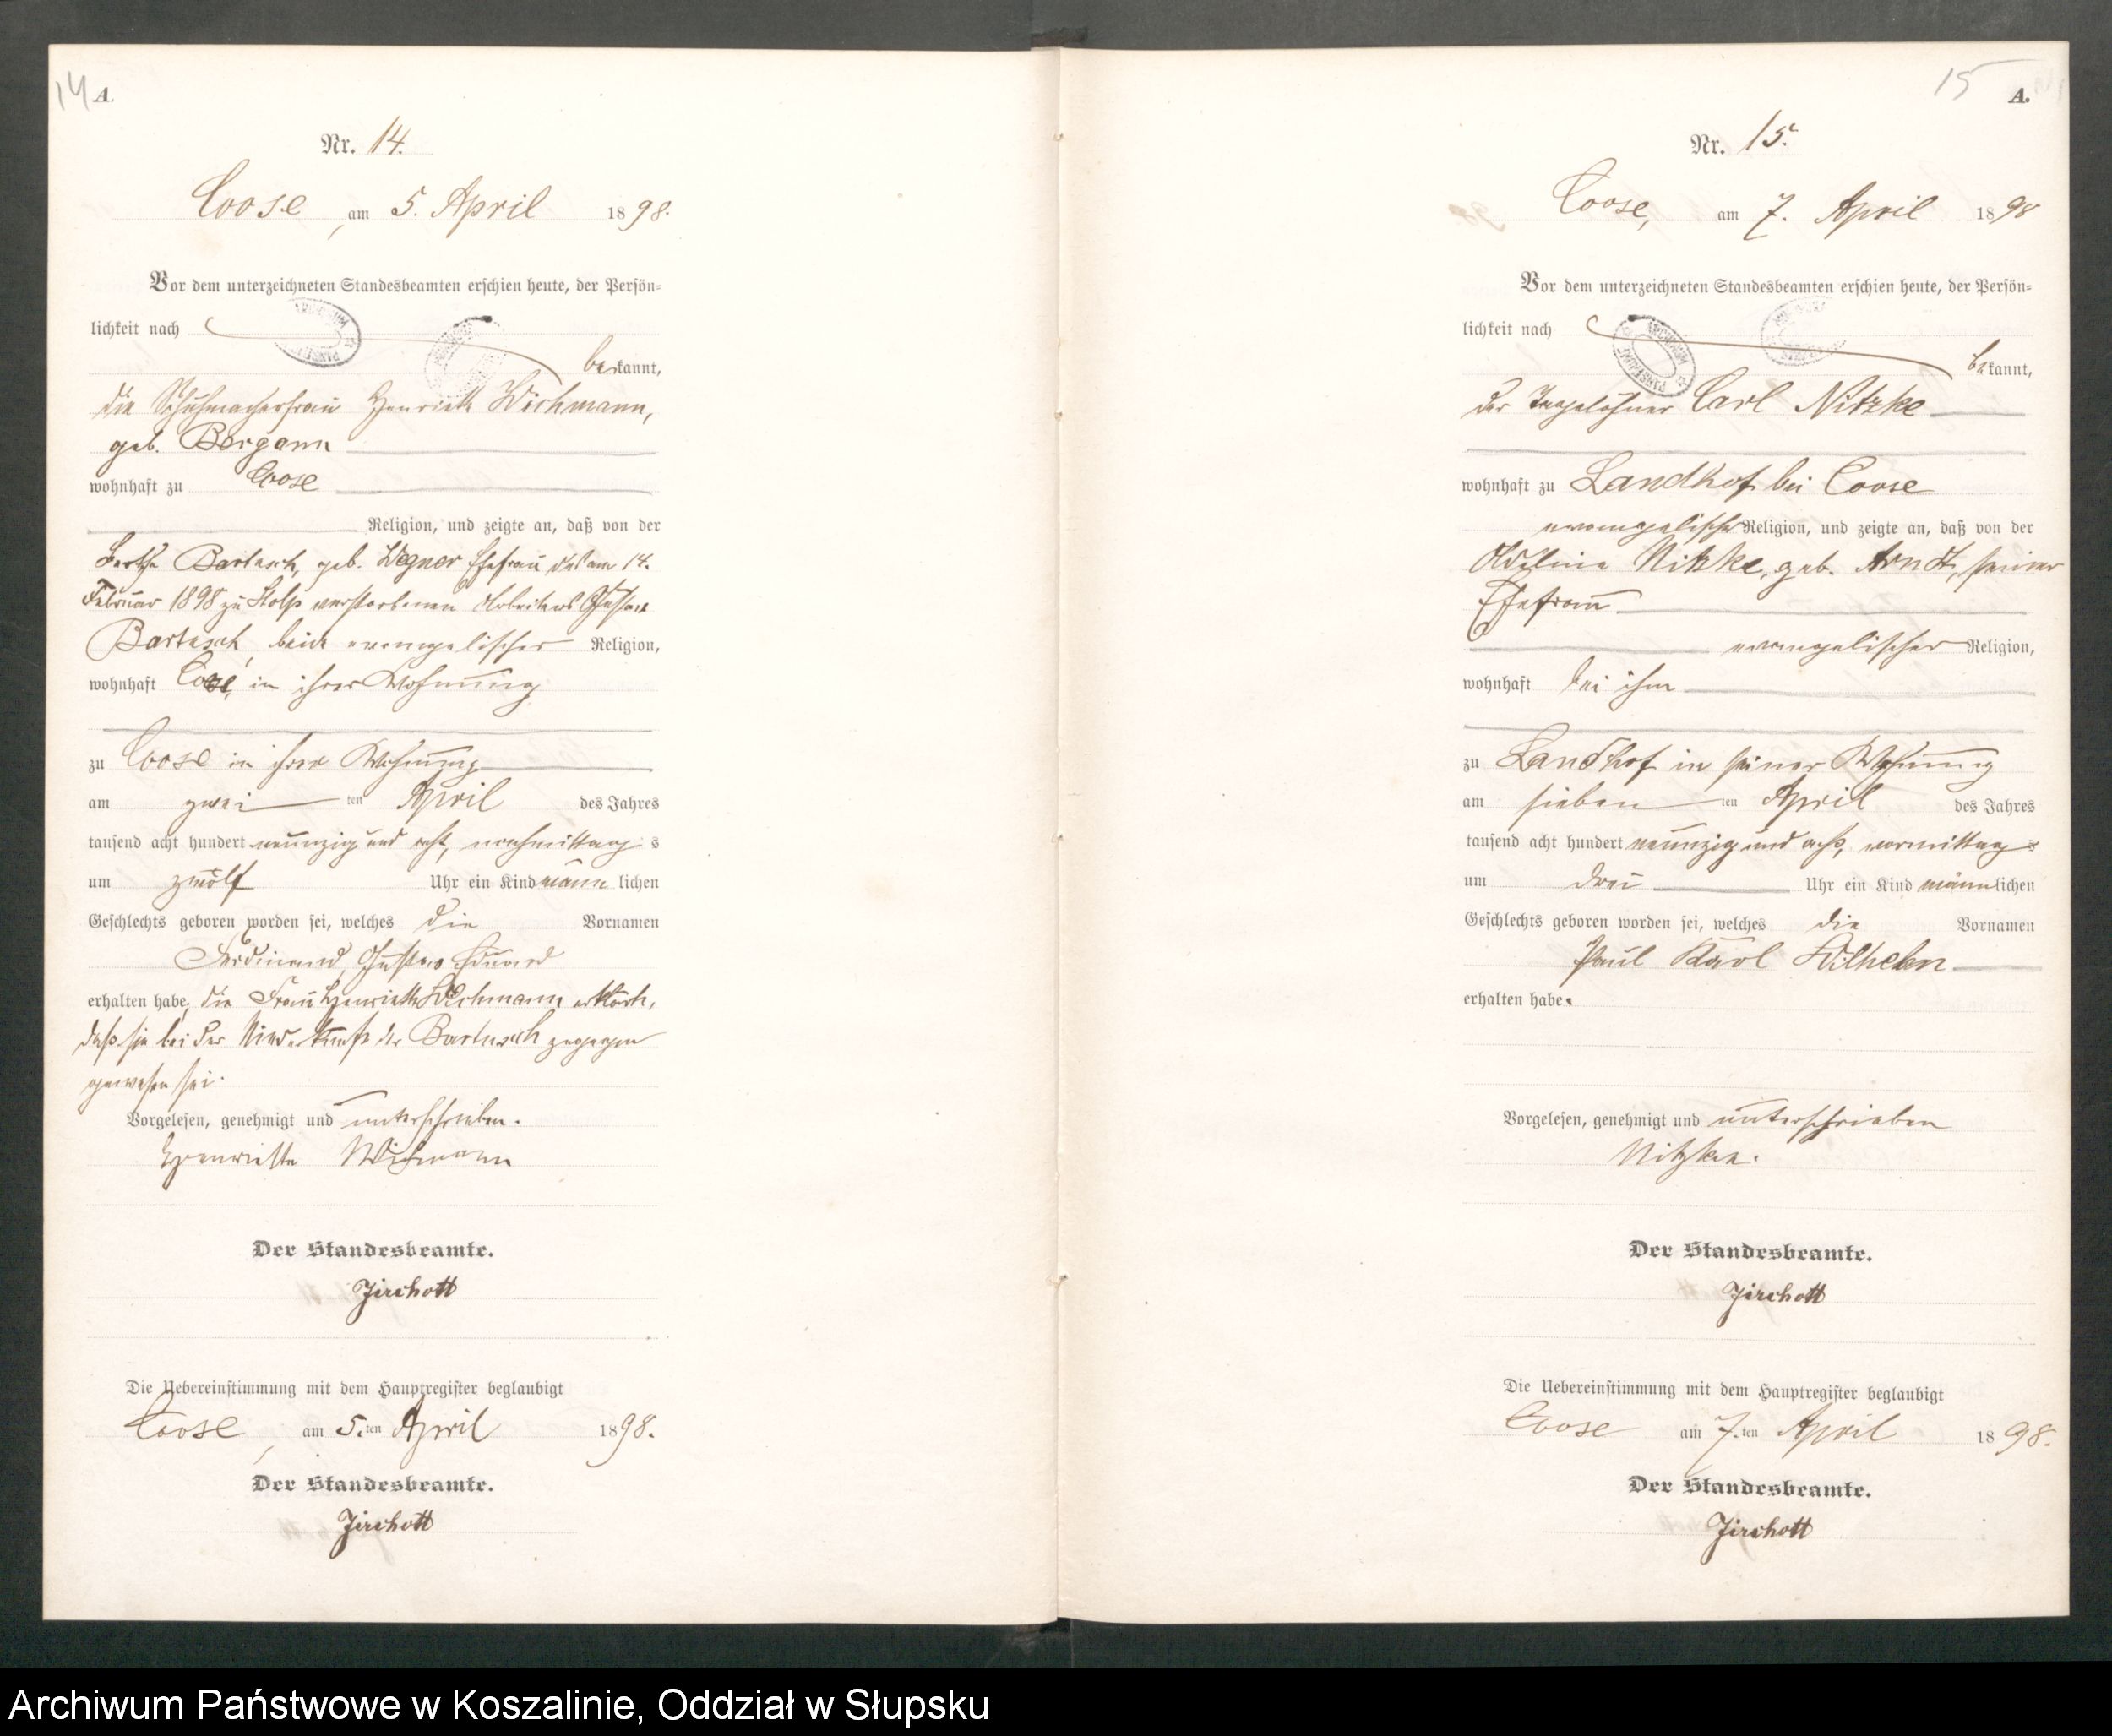 14 A.
Nr. 14.
Coose, am 5. April 1898.
Vor dem unterzeichneten Standesbeamten erschien heute, der Persön=
lichkeit nach
bekannt,
die Schuhmacherfrau Henriette Wichmann,
geb. Bergann
wohnhaft zu Coose
Religion, und zeigte an, daß von der
Bertha Bartusch, geb. Wegner Ehefrau des am 14.
Februar 1898 zu Stolp verstorbenen Arbeiters Gustav
Bartusch, beide evangelischer Religion,
wohnhaft Coose, in ihrer Wohnung
zu Coose in ihrer Wohnung
am zwei ten April des Jahres
tausend acht hundert neunzig und acht, nachmittag s
um zwölf Uhr ein Kind männ lichen
Geschlechts geboren worden sei, welches die Vornamen
Ferdinand, Gustav Eduard
erhalten habe, die Frau Henriette Wichmann erklärte,
daß sie bei der Niederkunft der Bartusch zugegen
gewesen sei.
Vorgelesen, genehmigt und unterschrieben.
Henriette Wichmann
Der Standesbeamte.
Zirchott
Die Uebereinstimmung mit dem Hauptregister beglaubigt
Coose, am 5. ten April 1898.
Der Standesbeamte.
Zirchott
15 A.
Nr. 15.
Coose, am 7. April 1898
Vor dem unterzeichneten Standesbeamten erschien heute, der Persön=
lichkeit nach
bekannt,
der Tagelöhner Carl Nitzke
wohnhaft zu Landhof bei Coose
evangelischer Religion, und zeigte an, daß von der
Adeline Nitzke, geb. Arndt, seiner
Ehefrau
evangelischer Religion,
wohnhaft bei ihm
zu Landhof in seiner Wohnung
am sieben ten April des Jahres
tausend acht hundert neunzig und acht, vormittag s
um drei Uhr ein Kind männlichen
Geschlechts geboren worden sei, welches die Vornamen
Paul Karl Wilhelm
erhalten habe.
Vorgelesen, genehmigt und unterschrieben
Nitzke.
Der Standesbeamte.
Zirchott
Die Uebereinstimmung mit dem Hauptregister beglaubigt
Coose am 7. ten April 1898.
Der Standesbeamte.
Zirchott
Archiwum Państwowe w Koszalinie, Oddział w Słupsku